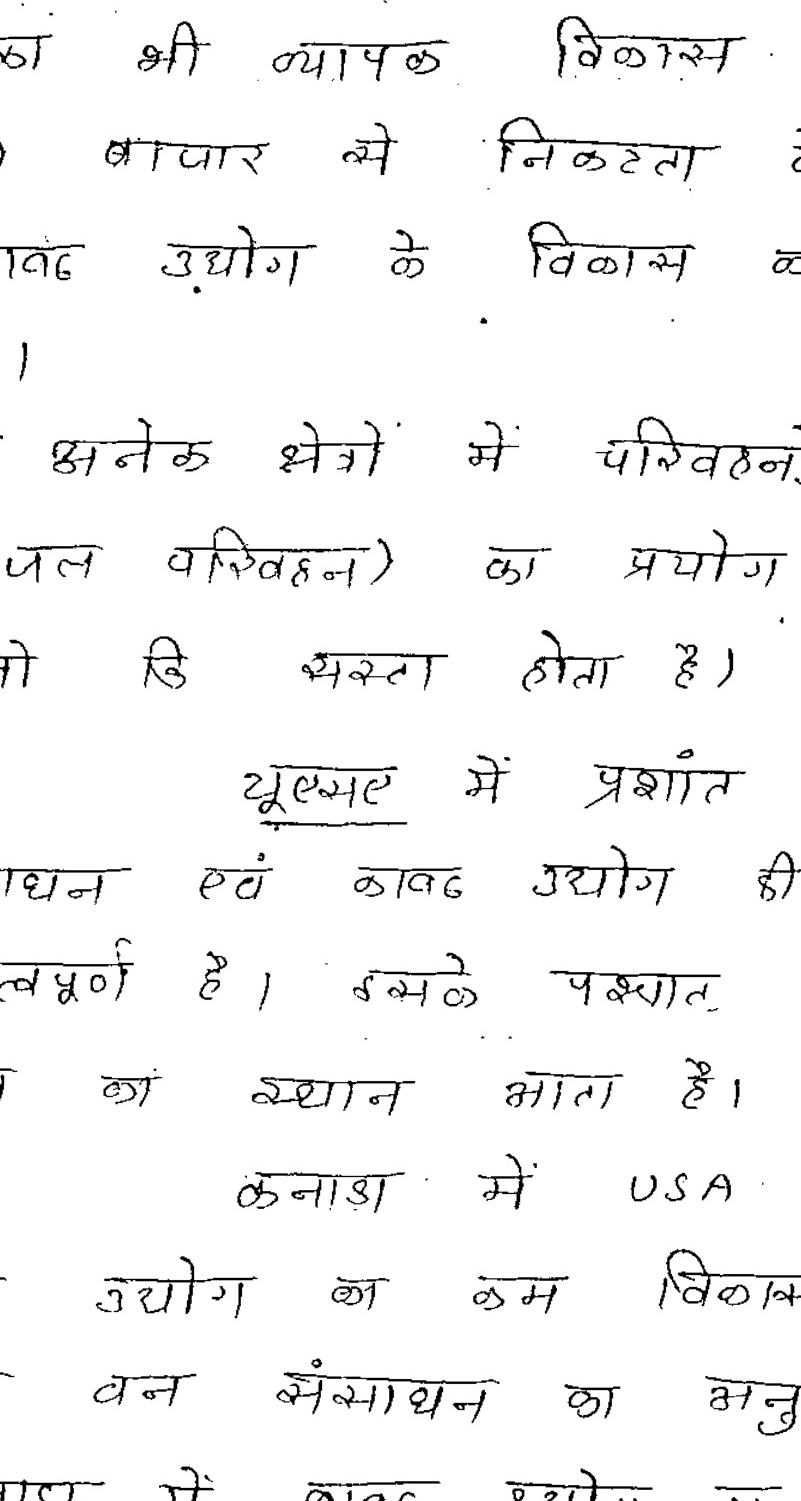 का भी व्यापक विकास
बाजार से निकटता
उद्योग के विकास
।
अनेक क्षेत्रों में परिवहन
जल परिवहन) का प्रयोग
कि सस्ता होता है।
यूएसए में प्रशांत
एवं कागज उद्योग ही
त्वपूर्ण है। इसके पश्चात
का स्थान आता है।
कनाडा में USA
उद्योग का कम विकास
वन संसाधन का अनु
में